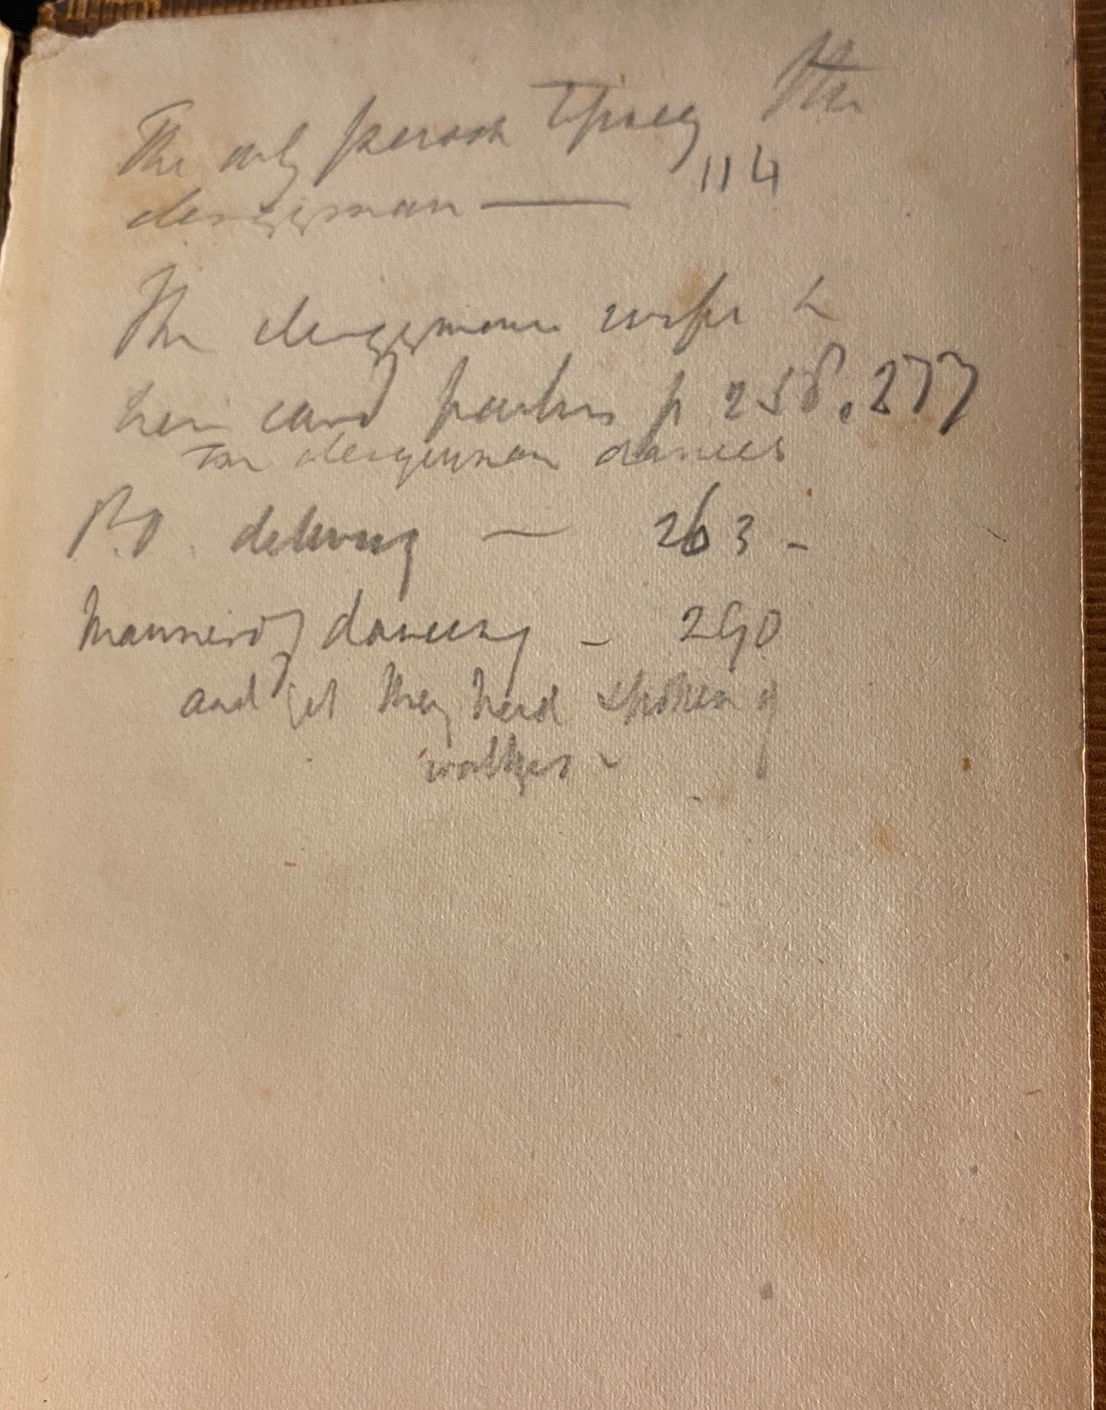 The only person Tipsey the
clergyman — 114
The clergymans wife &
her card parties p 258. 277
The clergyman dances
P.O. delivery — 263 -
Manner of dancing - 290
and yet they had spoken of
waltzes -